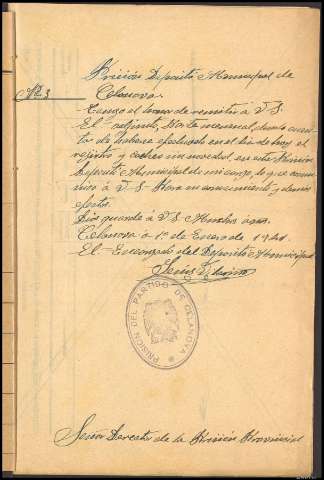 Prisión Deposito Municipal de
Celanova.
Nº 3
Tengo el honor de remitir á V.S.
El adjunto, Parte mensual, dando cuenta
de haberse efectuado en el dia de hoy, el
registro y cacheo sin novedad en esta Prisión
Deposito Municipal de mi cargo, lo que comu
nico á V.S. Para su conocimiento y demás
efectos.
Dios guarde á V.S. Muchos años.
Celanova á 1º de Enero de 1941.
El Encargado del Deposito Municipal
PRISION DEL PARTIDO DE CELANOVA
Señor Director de la Prisión Provincial